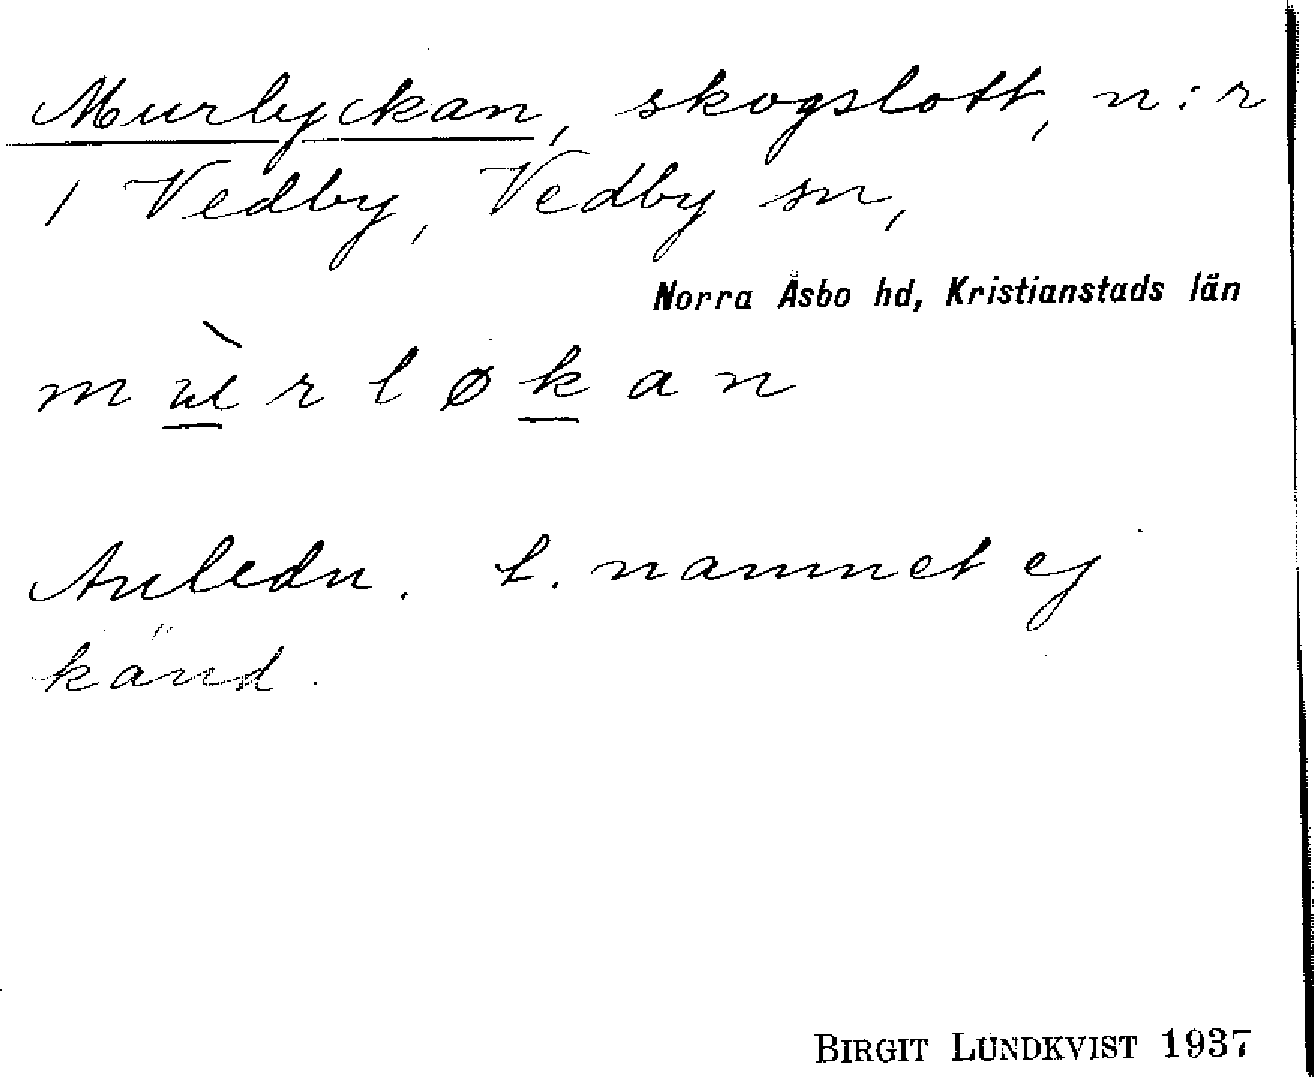 Murlyckan, skogslott, n:r
1 Vedby, Vedby sn,
Norra Åsbo hd, Kristianstads län
mùrløkan
Anledn. t. namnet ej
känd.
BIRGIT LUNDKVIST 1937